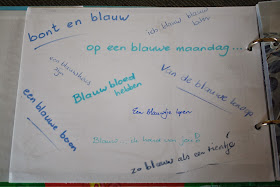 bont en blauw
ich blauw blauw
laten
op een blauwe maandag...
een blauwtje
Van de blauwe knoop
Blauw bloed
hebben
een blauwe boon
Een blauwtje lopen
Blauw: de kleur van
zo blauw als een tientje